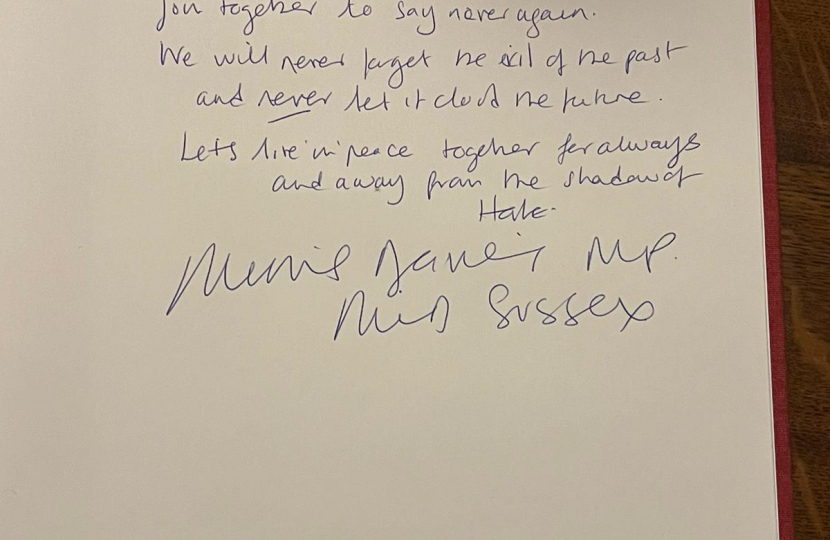 Join together to say never again.
We will never forget the evil of the past
and never let it cloud the future.
Lets live in peace together for always
and away from the shadow of
Hate.
Mims Davies MP.
Mid Sussex